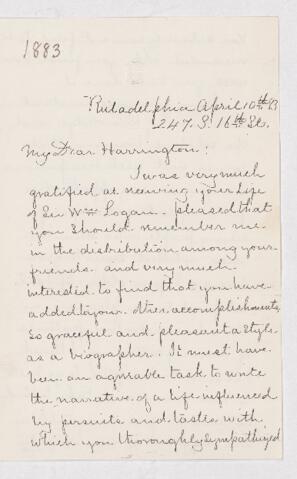 1883
Philadelphia April 10th 83
247. S. 16th St.
My Dear Harrington:
I was very much
gratified at receiving your Life
of Sir Wm Logan. pleased that
you should remember me
in the distribution among your
friends. and very much
interested to find that you have
added to your other accomplishments,
so graceful and pleasant a style
as a biographer. It must have
been an agreeable task to write
the narrative of a life influenced
by pursuits and tastes with
which you thoroughly sympathized